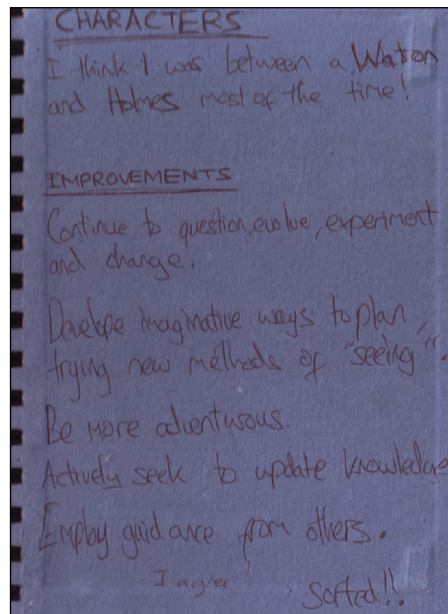 CHARACTERS
I think I was between a Watson
and Holmes most of the time!
IMPROVEMENTS
Continue to question, evolve, experiment
and change.
Develope imaginative ways to plan,
trying new methods of "seeing".
Be more adventurous.
Actively seek to update knowledge
Employ guidance from others.
I agree!
Sorted!!